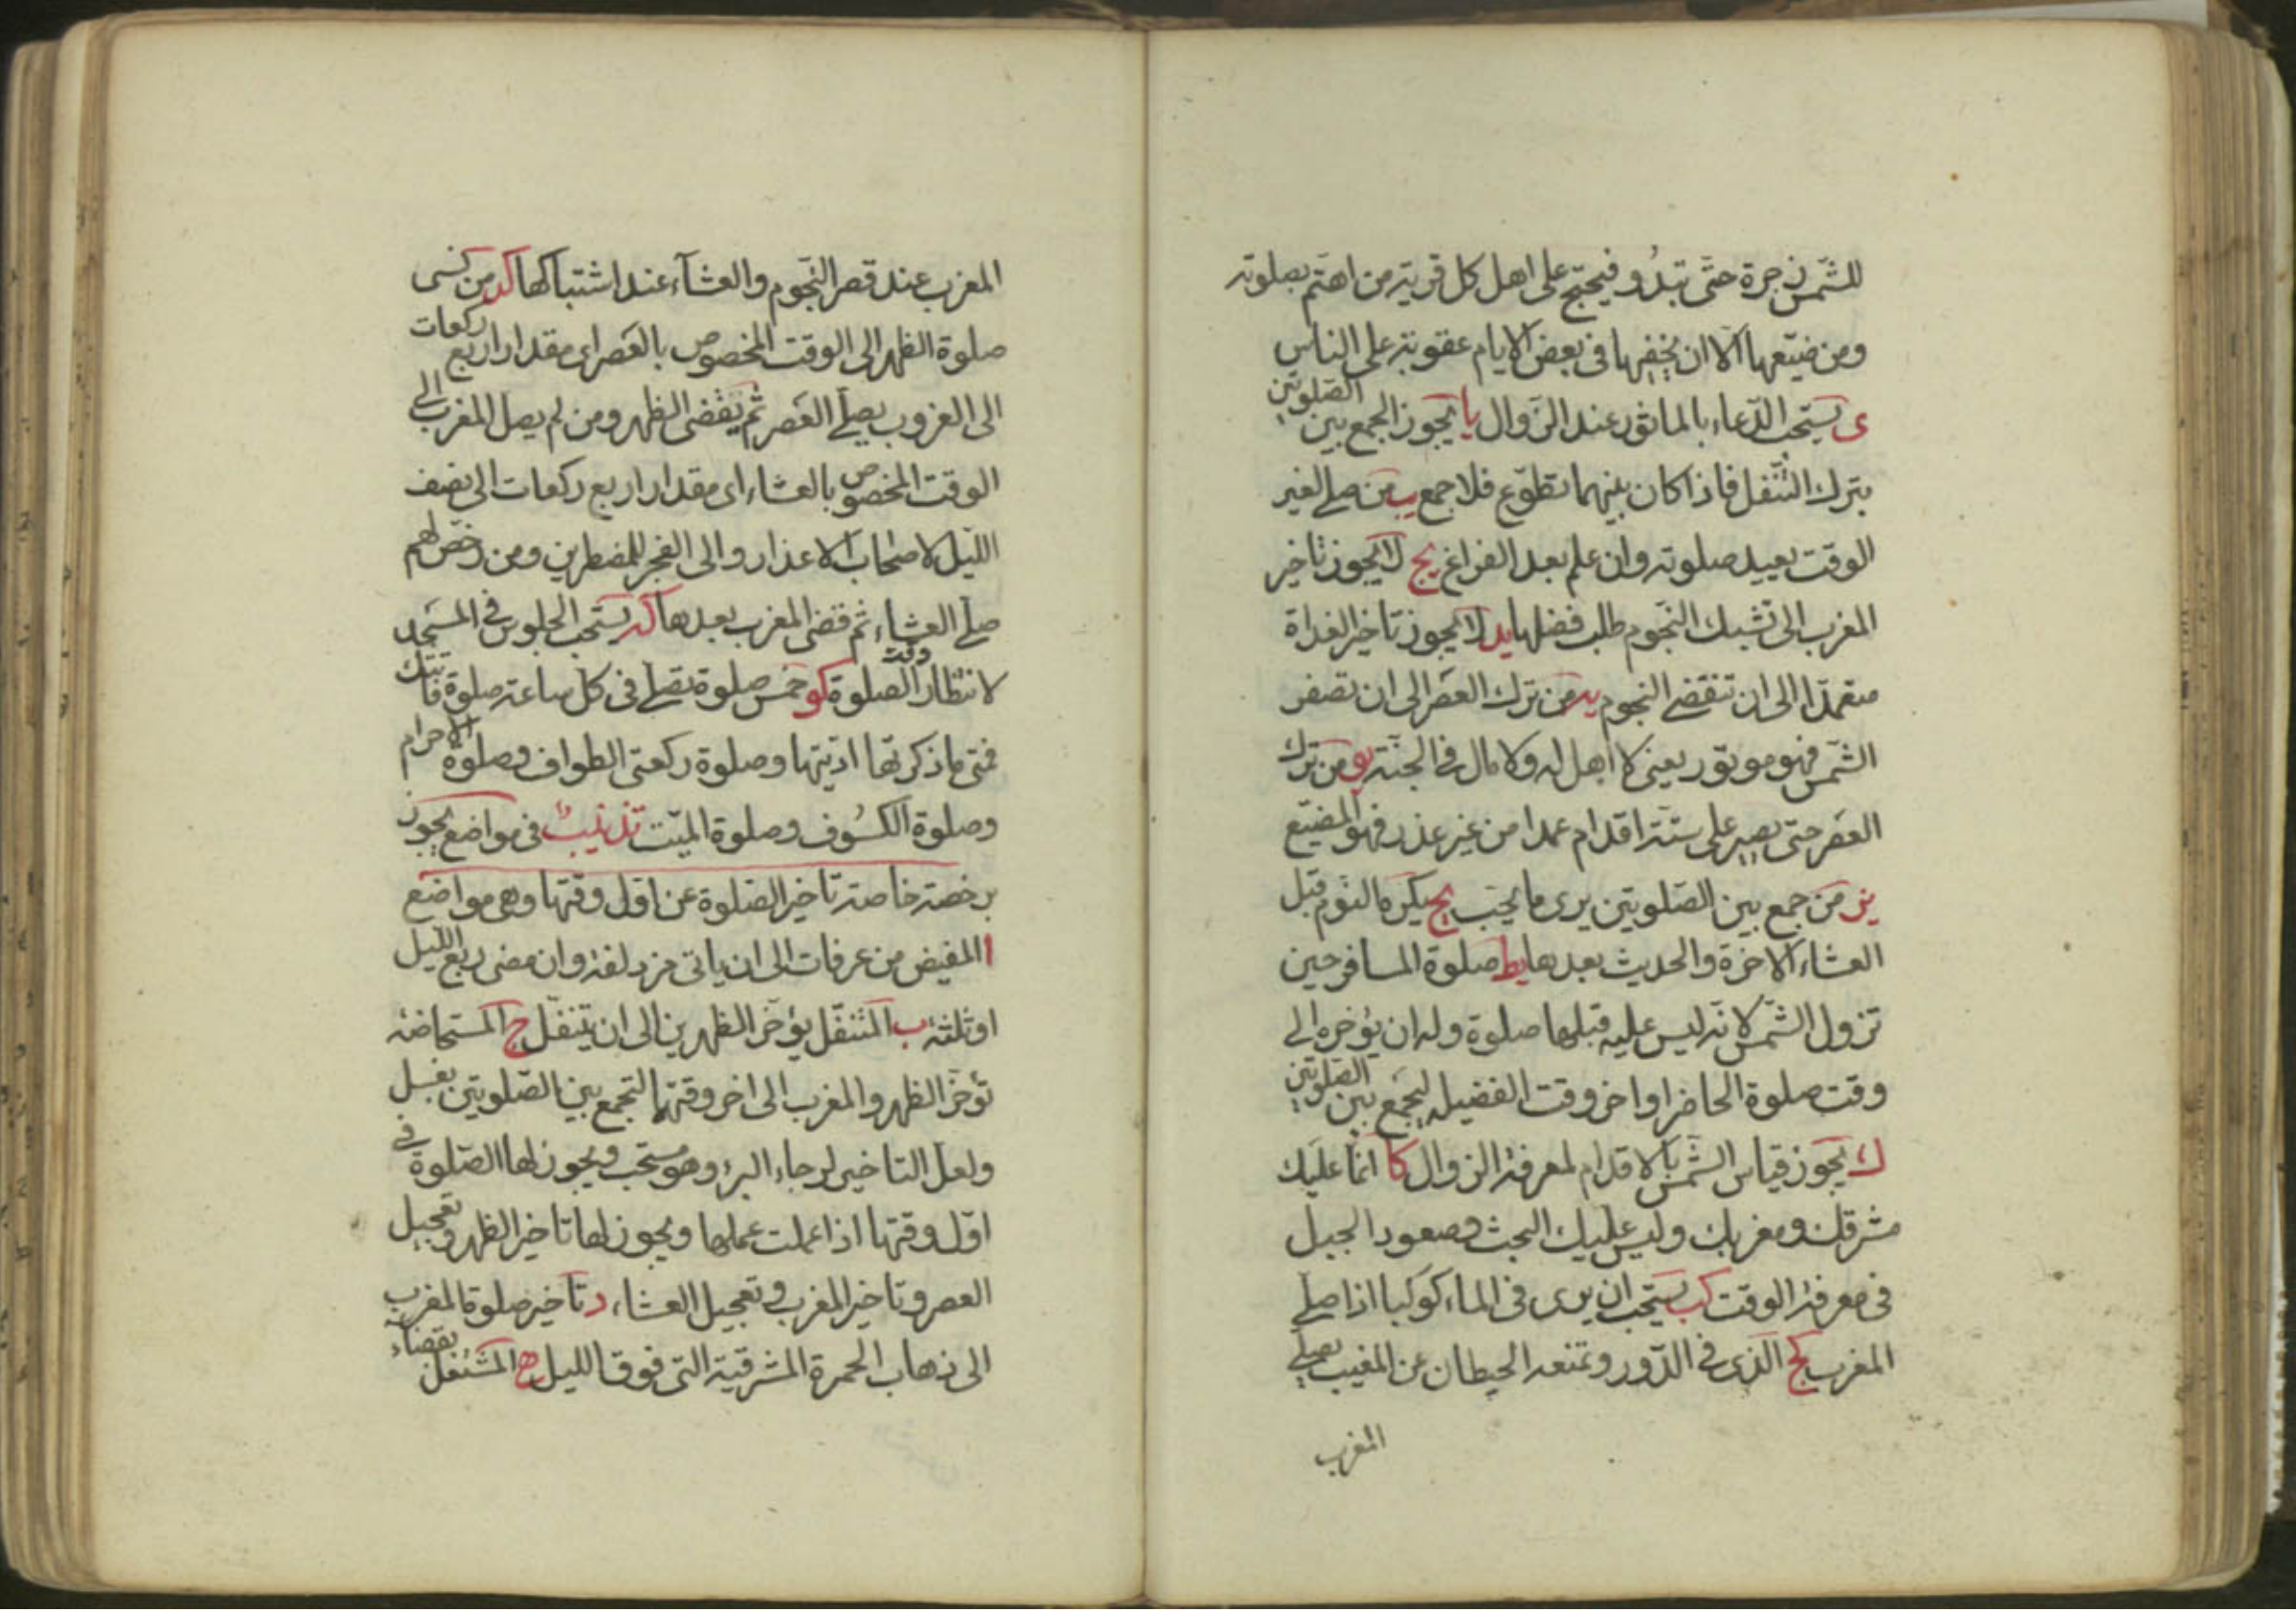 للشمس زجرة حتى تبدو فيحتج على اهل كل قرية من اهتم بصلوته
ومن ضيعها الا ان يخفيها في بعض الايام عقوبة على الناس
ى يستحب الدعاء بالماثور عند الزوال يا يجوز الجمع بين الصلوتين
بترك التنفل فاذا كان بينهما تطوع فلا جمع يب من صلى لغير
الوقت يعيد صلوته وان علم بعد الفراغ يج لا يجوز تاخير
المغرب الى تشبك النجوم طلب فضلها يد لا يجوز تاخير الغداة
متعمدا الى ان تنقضى النجوم يه من ترك العصر الى ان تصفر
الشمس فهو موتور يعنى لا اهل له ولا مال في الجنة يو من ترك
العصر حتى يصير على ستة اقدام عمدا من غير عذر فهو المضيع
يز من جمع بين الصلوتين يرى ما يحب يح يكره النوم قبل
العشاء الاخرة والحديث بعدها يط صلوة المسافر حين
تزول الشمس لانه ليس عليه قبلها صلوة وله ان يؤخره الى
وقت صلوة الحاضر او اخر وقت الفضيلة ليجمع بين الصلوتين
ك يجوز قياس الشمس بالاقدام لمعرفة الزوال كا انما عليك
مشرقك ومغربك وليس عليك البحث وصعود الجبل
في معرفة الوقت كب يستحب ان يرى في الماء كوكبا اذا صلى
المغرب كج الذى في الدور وتمنعه الحيطان عن المغيب يصلى
المغرب
المغرب عند قصر النجوم والعشاء عند اشتباكها كد من نسى
صلوة الظهر الى الوقت المخصوص بالعصر اى مقدار اربع ركعات
الى الغروب يصلى العصر ثم يقضى الظهر ومن لم يصل المغرب الى
الوقت المخصوص بالعشاء اى مقدار اربع ركعات الى نصف
الليل لاصحاب الاعذار والى الفجر للمضطرين ومن رخص لهم
صلى العشاء ثم قضى المغرب بعدها كه يستحب الجلوس في المسجد
لانتظار وقت الصلوة كو خمس صلوة تصلى في كل ساعة صلوة فاتتك
فمتى ما ذكرتها اديتها وصلوة ركعتى الطواف وصلوة الاحرام
وصلوة الكسوف وصلوة الميت تذنيب في مواضع يجوز
برخصة خاصة تاخير الصلوة عن اول وقتها وهى مواضع
ا المفيض من عرفات الى ان ياتى مزدلفة وان مضى ربع الليل
او ثلثه ب المتنفل يؤخر الظهرين الى ان يتنفل ج المستحاضة
تؤخر الظهر والمغرب الى اخر وقتها لتجمع بين الصلوتين بغسل
ولعل التاخير لرجاء البرء وهو مستحب ويجوز لها الصلوة في
اول وقتها اذا عملت عملها ويجوز لها تاخير الظهر وتعجيل
العصر وتاخير المغرب وتعجيل العشاء د تاخير صلوة المغرب
الى ذهاب الحمرة المشرقية التى فوق الليل ه المشتغل بقضاء